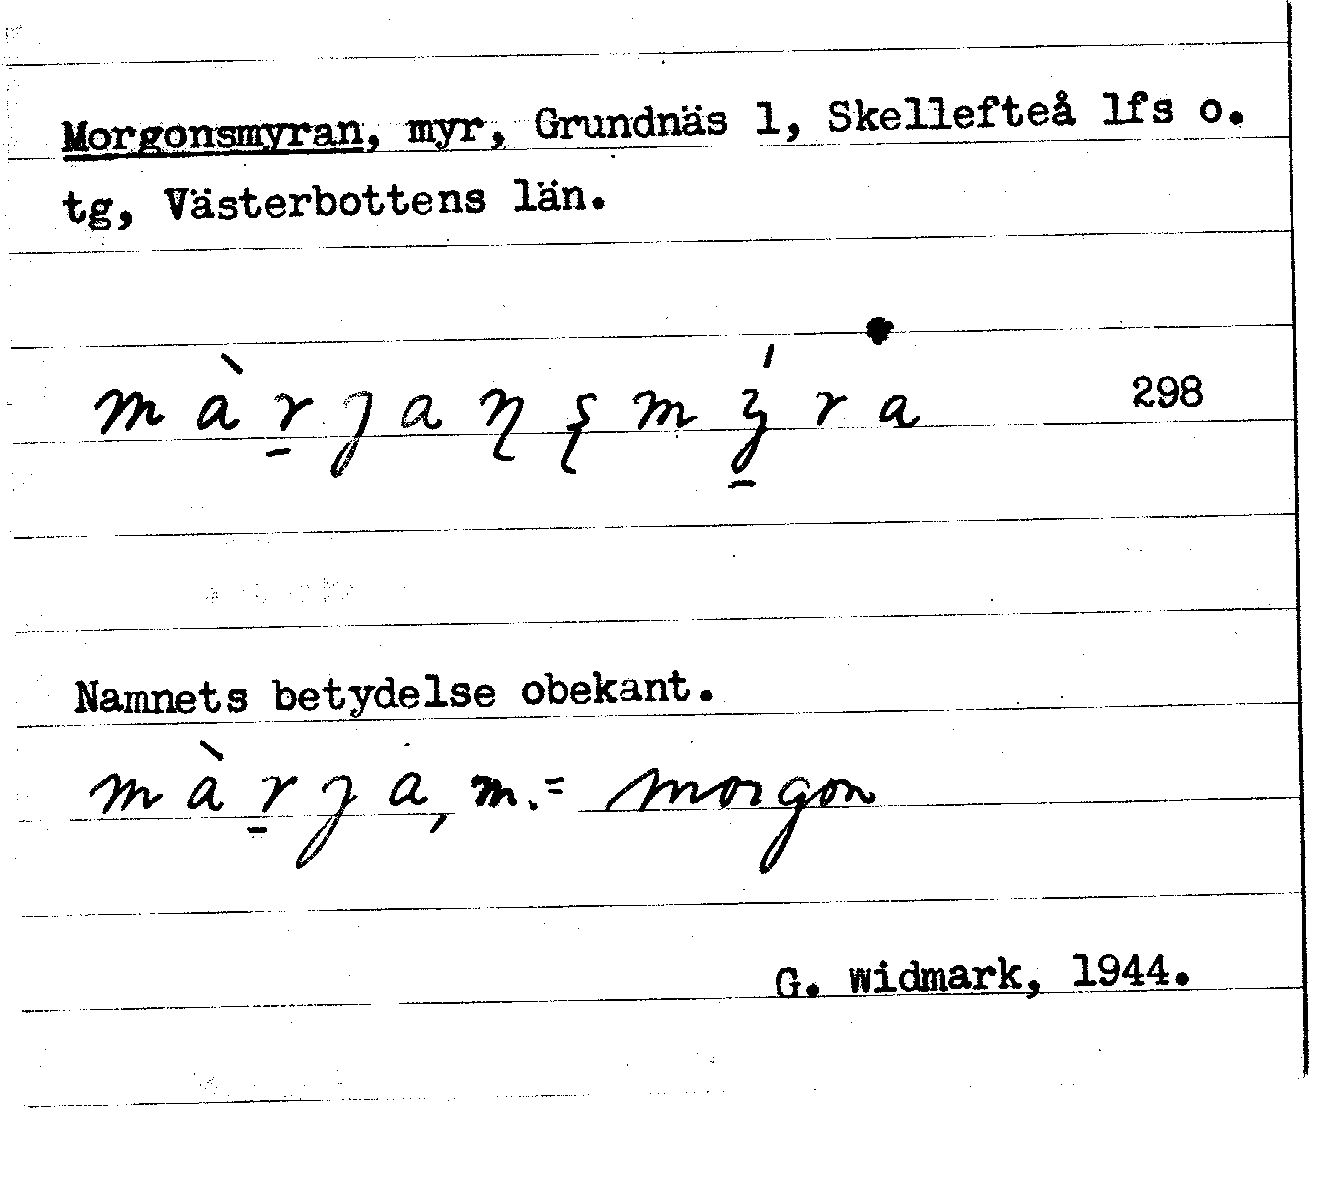 Morgonsmyran, myr, Grundnäs 1, Skellefteå lfs o.
tg, Västerbottens län.
màr̠jaɳʂmý̠ra 298
Namnets betydelse obekant.
màr̠ja, m. = morgon
G. Widmark, 1944.